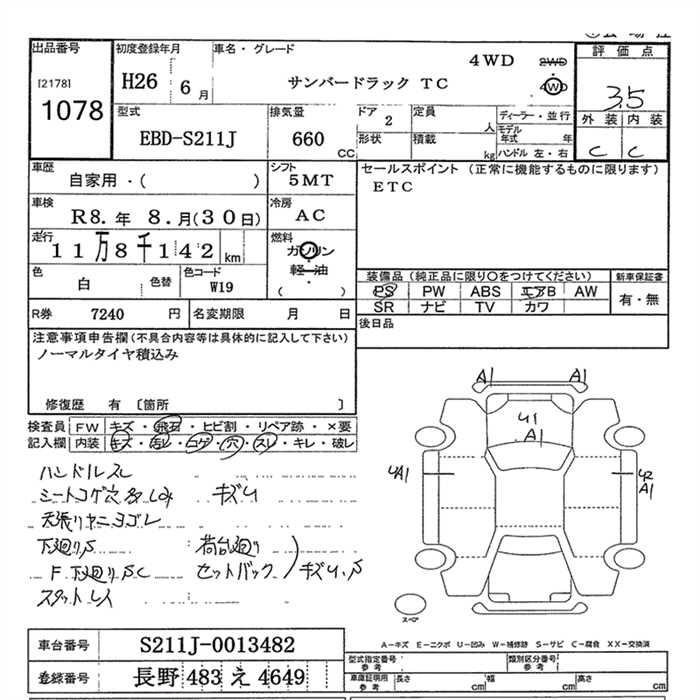 出品番号
[2178]
1078
初度登録年月
H26 6月
車名・グレード
サンバードラック TC
4WD
2WD
4WD
評価点
3.5
外装 内装
C C
型式
EBD-S211J
排気量
660 CC
ドア
2
定員
人
形状
積載
kg
ディーラー・並行
モデル年式 年
ハンドル 左・右
車歴
自家用・( )
シフト
5MT
セールスポイント (正常に機能するものに限ります)
ETC
車検
R8. 年 8. 月(30日)
冷房
AC
走行
11万8千142 km
燃料
ガソリン
軽・油
・
( )
色
白
色替
色コード
W19
装備品(純正品に限り○をつけてください)
PS PW ABS エアB AW
SR ナビ TV カワ
新車保証書
有・無
R券 7240 円
名変期限 月 日
後日品
注意事項申告欄(不具合内容等は具体的に記入して下さい)
ノーマルタイヤ積込み
修復歴 有 〔箇所 〕
検査員記入欄
FW キズ・飛石・ヒビ割・リペア跡・×要
内装 キズ・汚レ・コゲ・穴・スレ・キレ・破レ
ハンドルスレ
シートコゲ穴 キズU
天張りヤニヨゴレ
下廻りS
荷台廻り
F下廻りSC
セットバック
キズU.S
A1 A1
U1
A1
UA1
U2
A1
スペア
A-キズ E-エクボ U-凹み W-補修跡 S-サビ C-腐食 XX-交換済
車台番号
S211J-0013482
登録番号
長野 483 え 4649
型式指定番号
参考
類別区分番号
参考
車庫証明用
参考
長さ cm
幅 cm
高さ cm